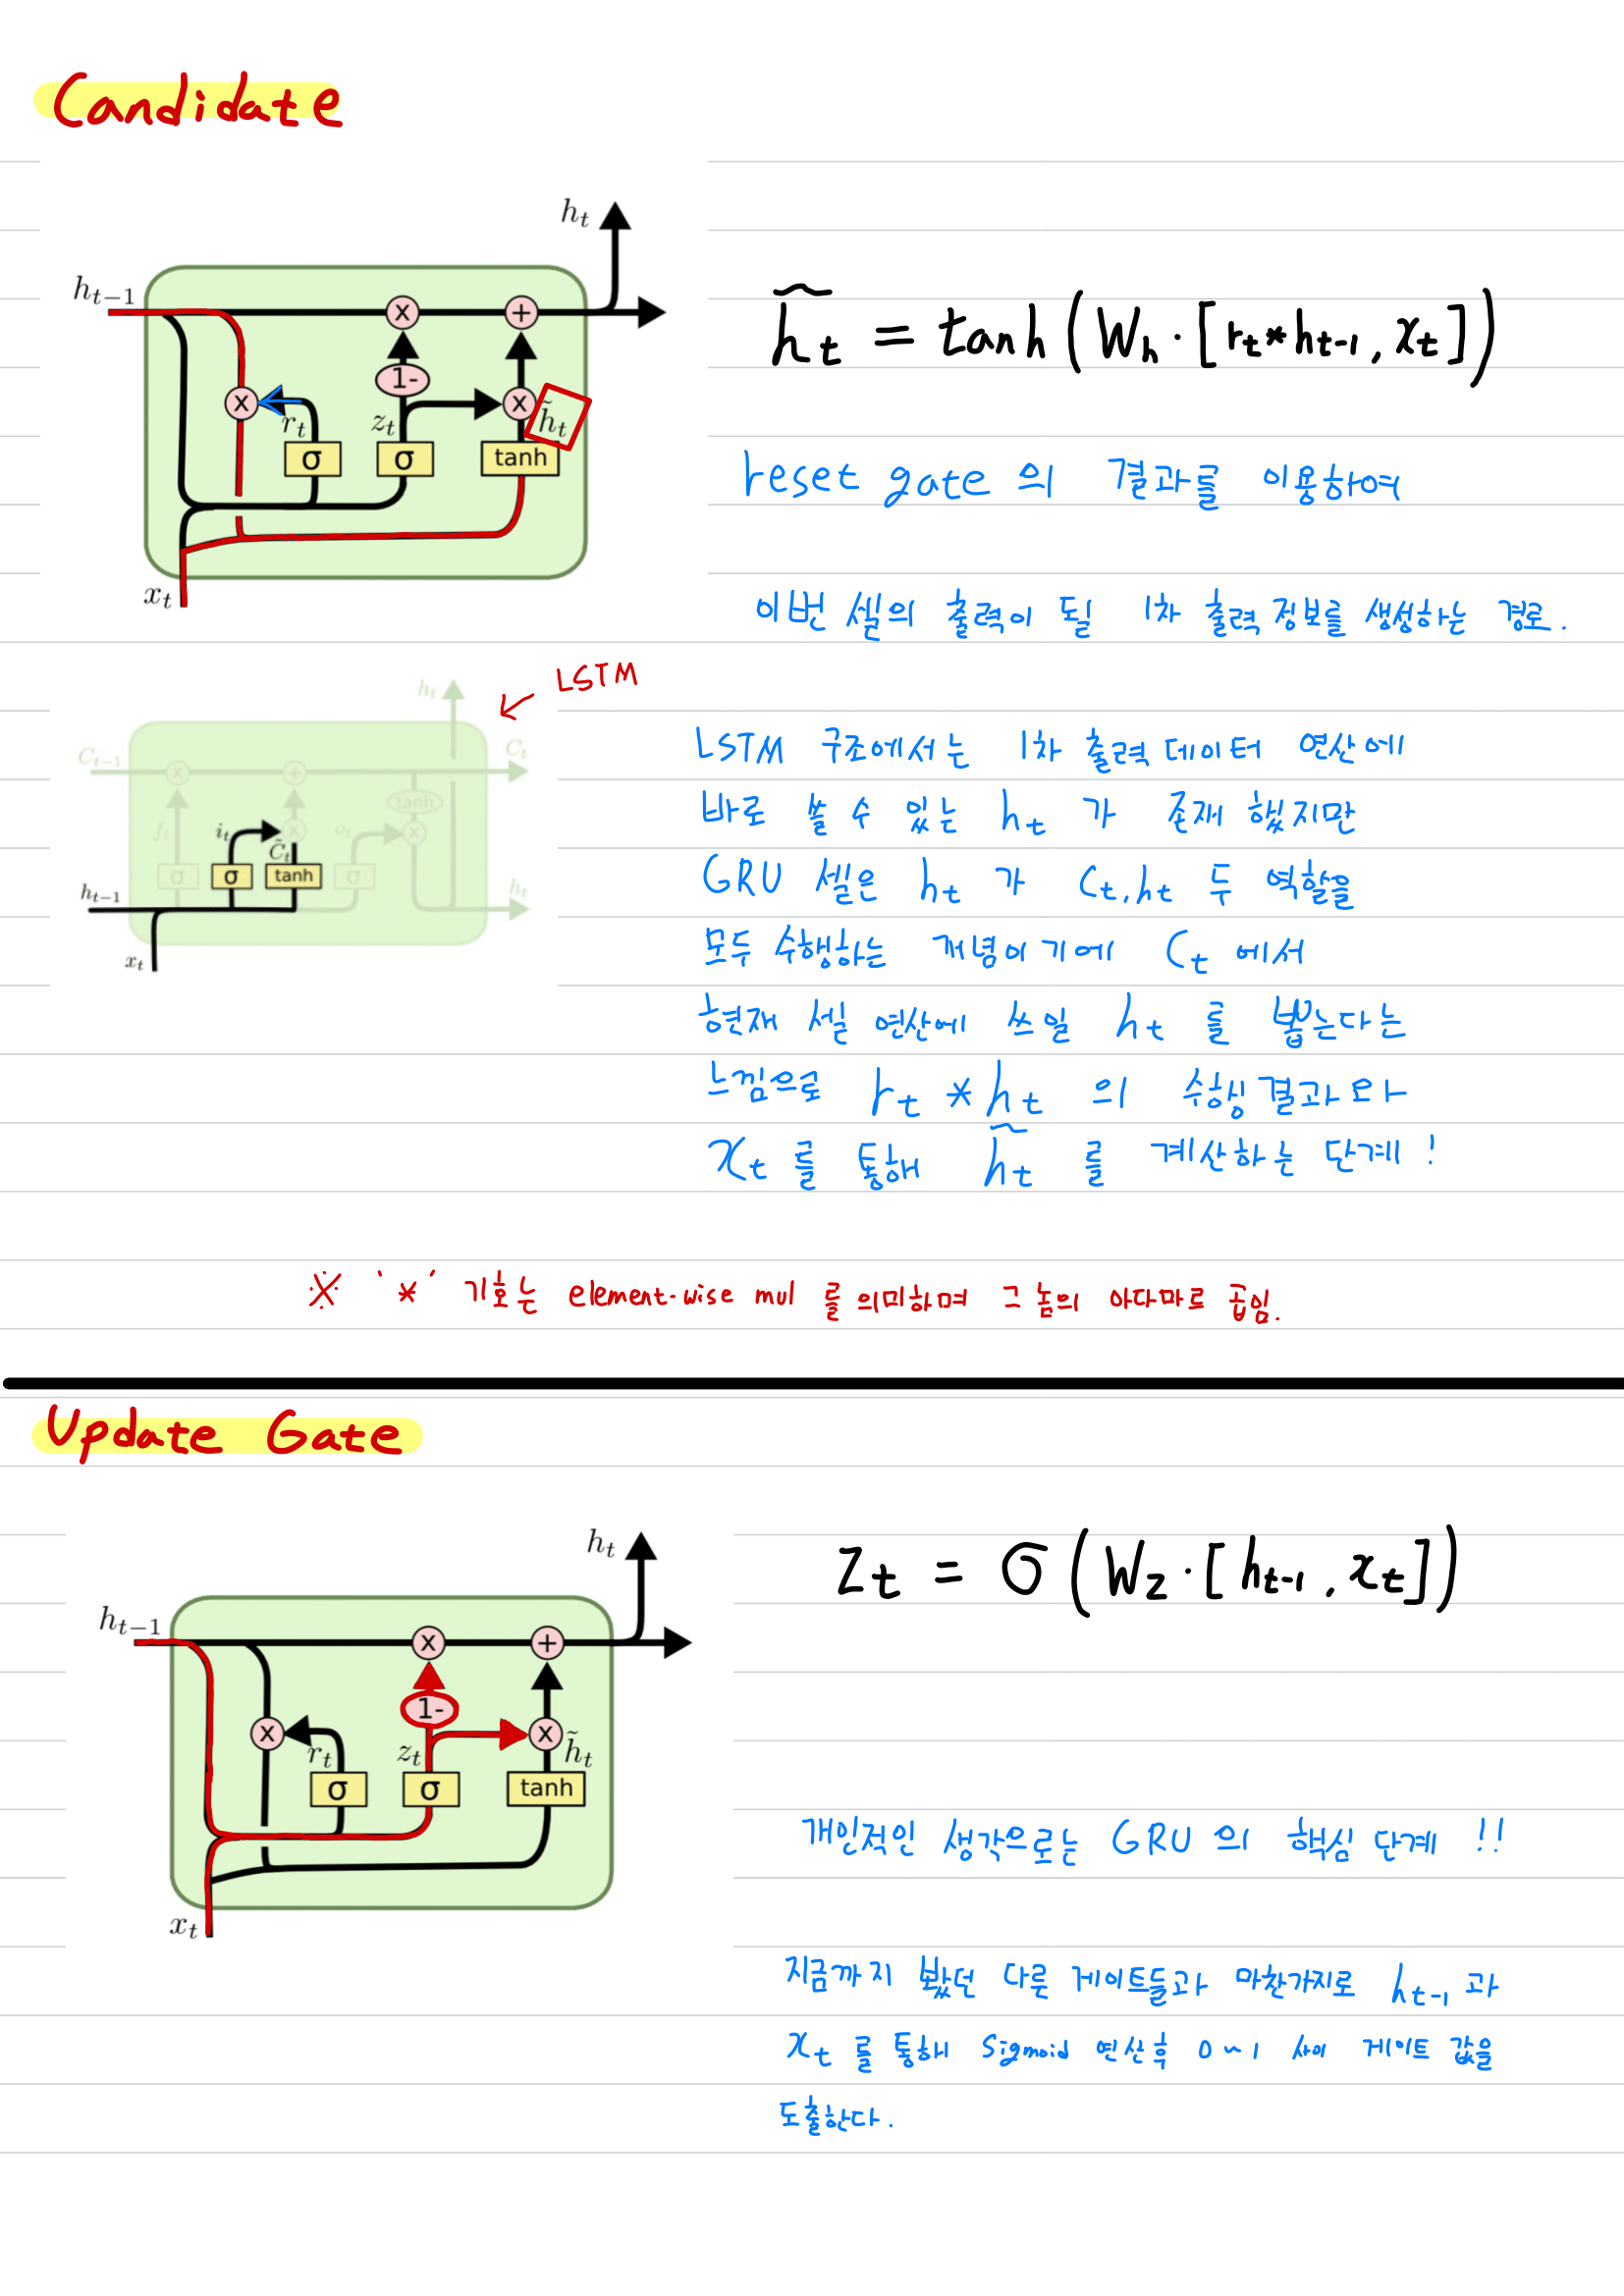 Candidate
h_t
h_{t-1}
x + 1-
x r_t z_t x h̃_t
σ σ tanh
x_t
h̃_t = tanh(W_h·[r_t*h_{t-1}, x_t])
reset gate 의 결과를 이용하여
이번 셀의 출력이 될 1차 출력 정보를 생성하는 경로.
LSTM
h_t
C_{t-1} x + C_t
tanh
f_t i_t x o_t x
C̃_t
σ σ tanh σ
h_{t-1} h_t
x_t
LSTM 구조에서는 1차 출력 데이터 연산에
바로 쓸 수 있는 h_t 가 존재 했지만
GRU 셀은 h_t 가 C_t, h_t 두 역할을
모두 수행하는 개념이기에 C_t 에서
현재 셀 연산에 쓰일 h_t 를 뽑는다는
느낌으로 r_t * h_t 의 수행결과와
x_t 를 통해 h̃_t 를 계산하는 단계!
※ '*' 기호는 element-wise mul 를 의미하며 그 놈의 아다마르 곱임.
Update Gate
h_t
h_{t-1}
x + 1-
x r_t z_t x h̃_t
σ σ tanh
x_t
z_t = σ(W_z·[h_{t-1}, x_t])
개인적인 생각으로는 GRU 의 핵심 단계 !!
지금까지 봤던 다른 게이트들과 마찬가지로 h_{t-1} 과
x_t 를 통해 Sigmoid 연산후 0~1 사이 게이트 값을
도출한다.